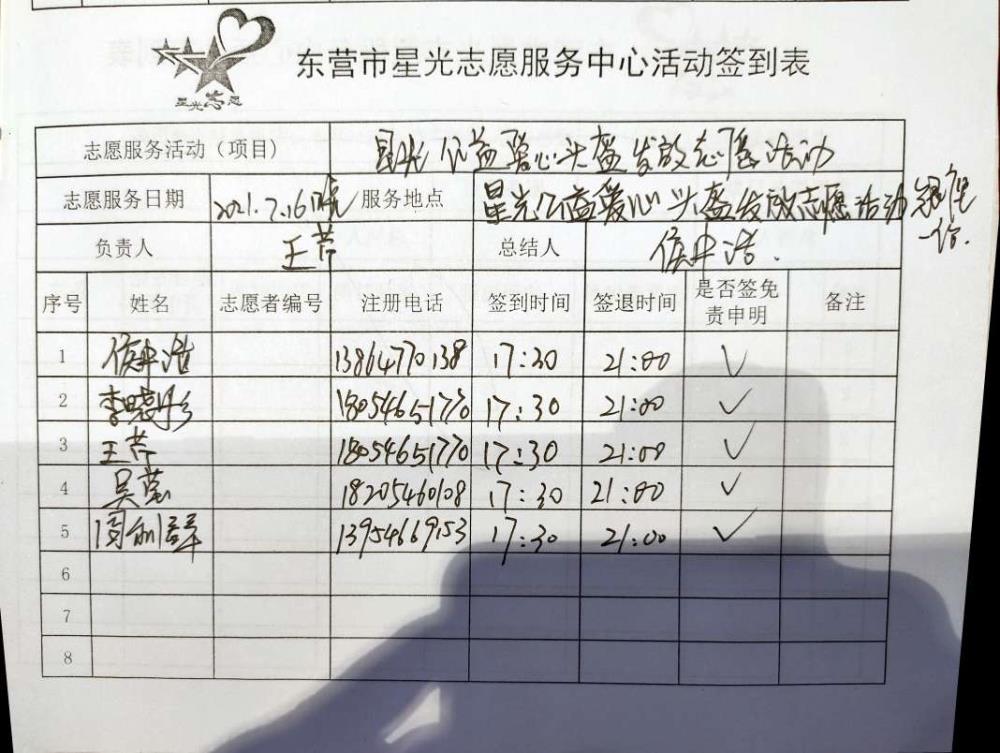 星光志愿
东营市星光志愿服务中心活动签到表
志愿服务活动（项目） 星光公益爱心头盔发放志愿活动
志愿服务日期 2021.7.16 服务地点 星光公益爱心头盔发放志愿活动
负责人 王芹 总结人 侯井浩.
序号 姓名 志愿者编号 注册电话 签到时间 签退时间 是否签免责申明 备注
1 侯井浩 13864770138 17:30 21:00 ✓
2 李晓彤 18054651770 17:30 21:00 ✓
3 王芹 18054651770 17:30 21:00 ✓
4 吴莹 18205460108 17:30 21:00 ✓
5 周利群 13954669153 17:30 21:00 ✓
6
7
8